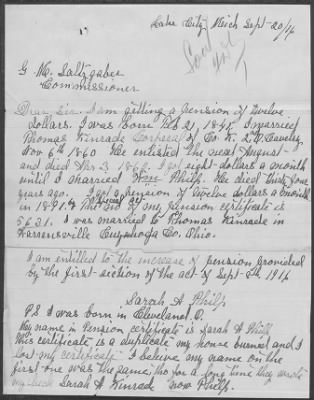 Lake City, Mich Sept-20/16
G. M. Saltzgaber
Commissioner
Dear Sir. I am getting a pension of twelve
dollars. I was born Feb 21, 1845. I married
Thomas Kinrade Corperal of Co.
Nov 6th 1860 He enlisted the next August
and died Mar 3 I got eight dollars a month
until I married Philp. He died
years ago. I got a pension of twelve dollars a month
in 1891. The No of my pension certificate is
5631. I was married to Thomas Kinrade in
Warrensville Cuyahoga Co. Ohio.
I am entitled to the increase of pension provided
by the first section of the act of Sept-8th 1916
Sarah A Philp.
PS I was born in Cleveland, O.
My name in Pension certificate is Sarah A Philp
this certificate is a duplicate my house burned and I
lost my certificate I believe my name on the
first one was the same, tho for a long time they wrote
my check Sarah A Kinrade now Philp.